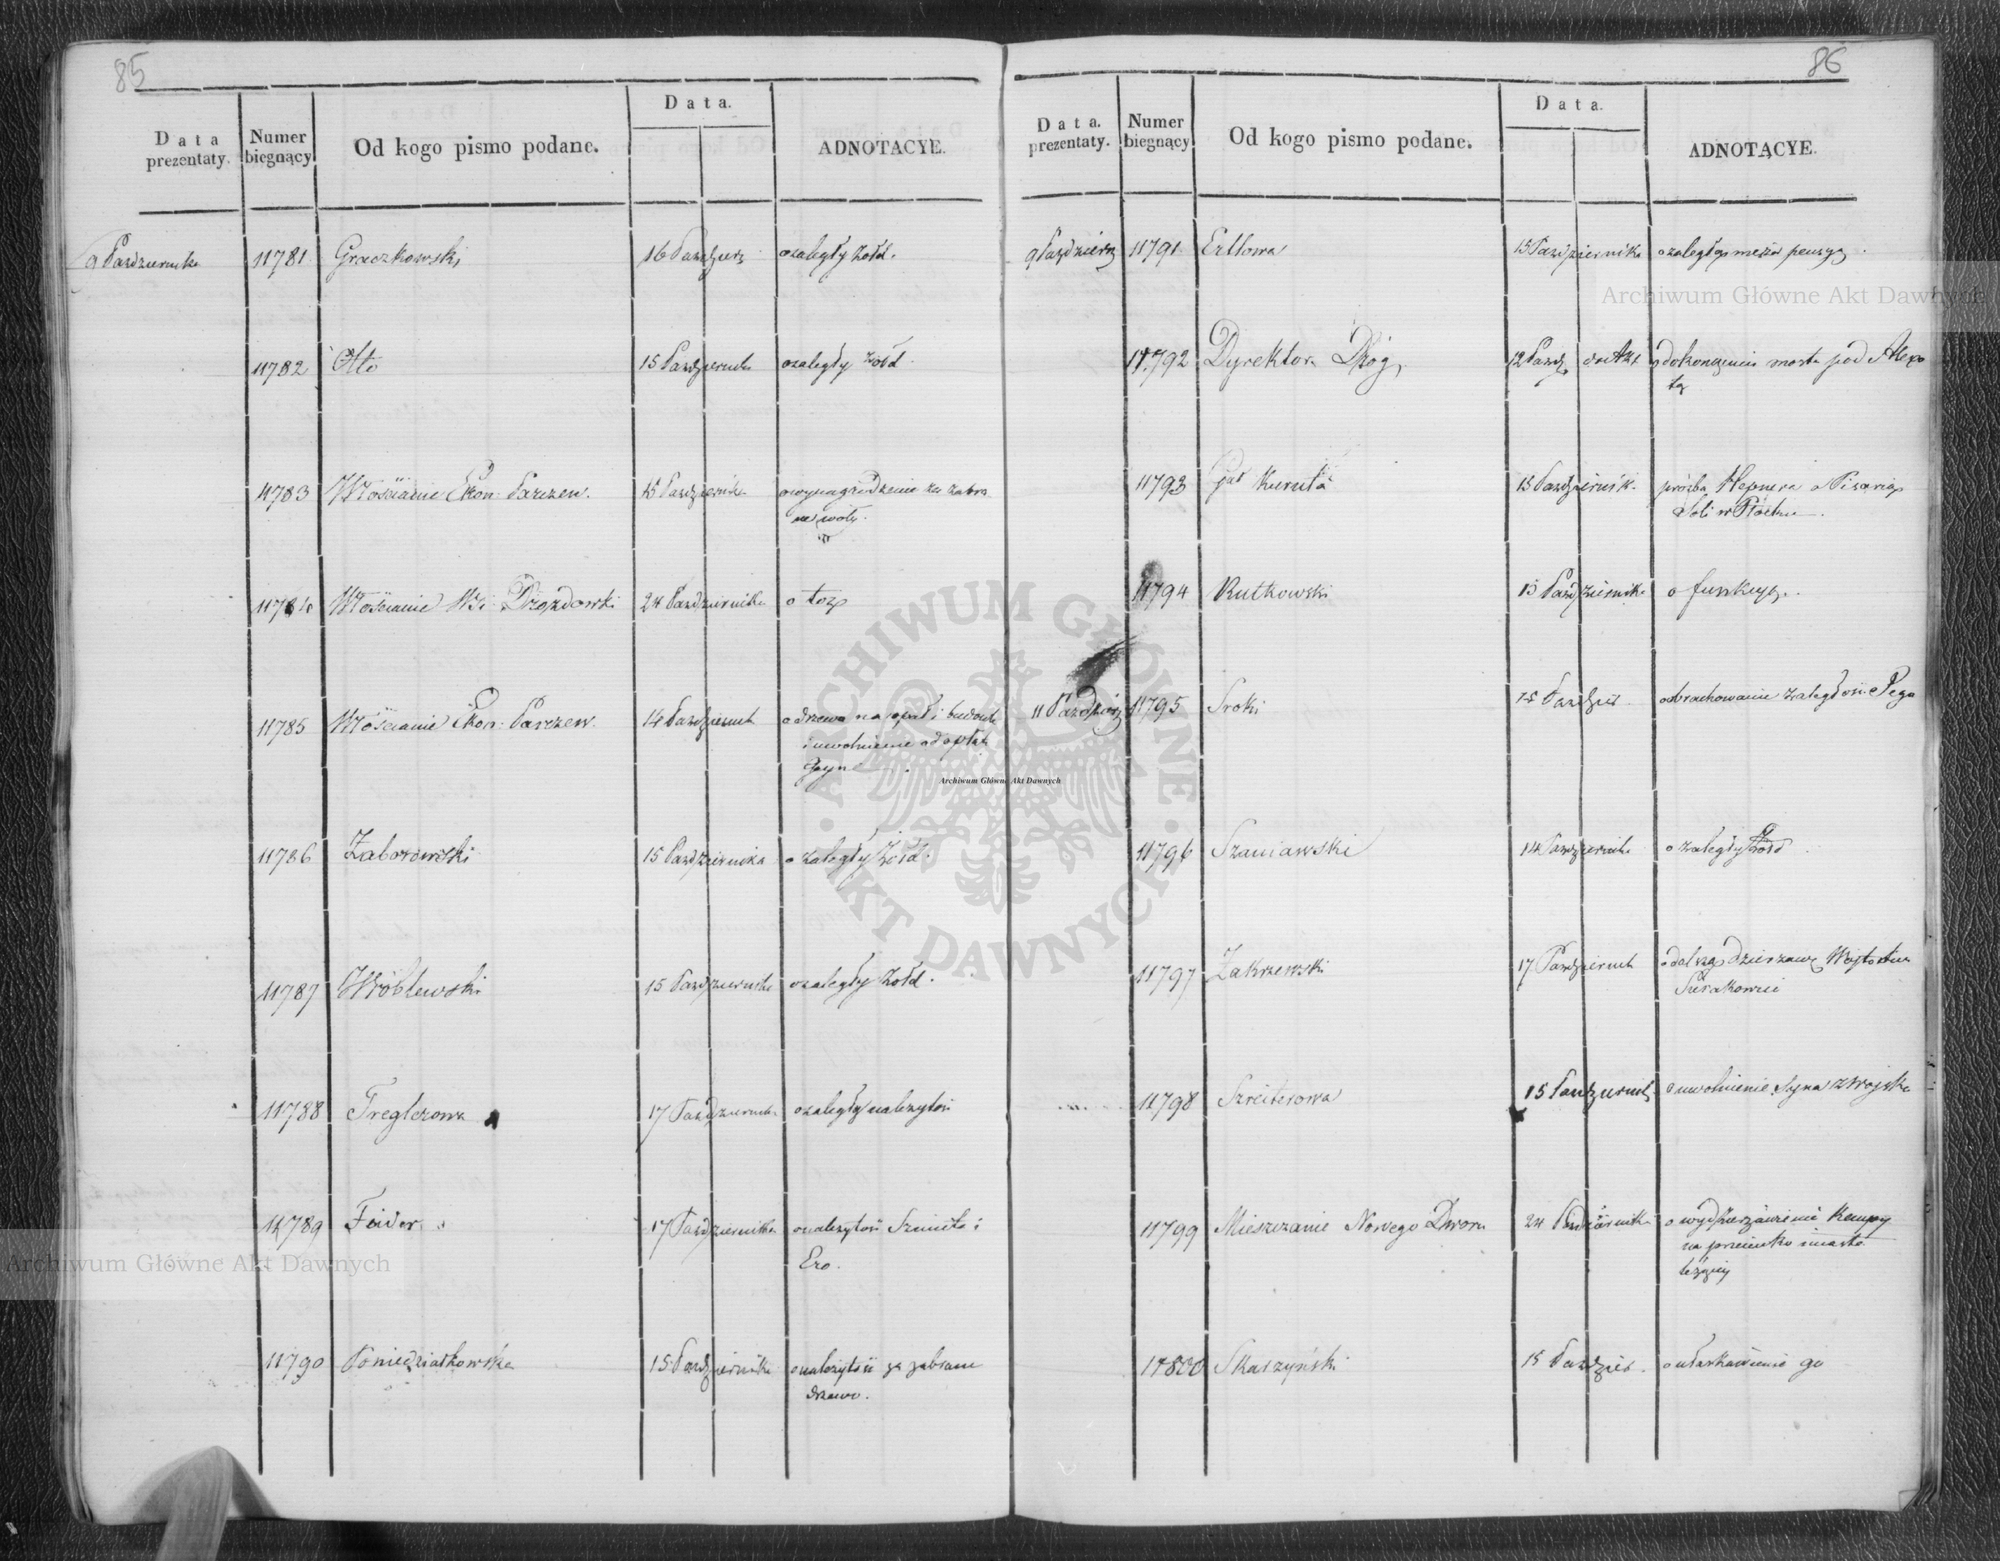 85
Data prezentaty. Numer biegnący Od kogo pismo podane. Data. ADNOTACYE.
9 Pazdziernika 11781 Graczkowski 16 Pazdzierz o zaległy żołd.
11782 Otto 15 Pazdziernik o zaległy żołd.
11783 Włościanie Ekon. Parczew. 15 Pazdziernik o wynagrodzenie za zabra
ne woły.
11784 Włościanie Wsi Drozdowski 24 Pazdziernika o toż
11785 Włościanie Ekon. Parczew. 14 Pazdziernik o drzewo na opał i budowle
i uwolnienie od opłat
11786 Zaborowski 15 Pazdziernika o zaległy żołd.
11787 Wróblewski 15 Pazdziernika o zaległy żołd.
11788 17 Pazdziernik o zaległą należytość
11789 Feider 17 Pazdziernika o należytość Szmita i
11790 Poniedziałkowska 15 Pazdziernika o należytość za zabrane
drzewo.
86
Data. prezentaty. Numer biegnący Od kogo pismo podane. Data. ADNOTACYE.
9 Pazdzierz 11791 Ertlowa 15 Pazdziernika o zaległą męża pensyą.
11792 Dyrektor Dróg 12 Pazdz. o dokonczenie mostu pod Alexo
tą
11793 15 Październik. prośba Hepnera o Pisarią
Soli w Płocku.
11794 Rutkowski 15 Pazdziernika o funkcyą.
11 Pazdzierz 11795 Sroki Pazdzier o obrachowanie zaległości
11796 Szaniawski 14 Pazdziernik o zaległy żołd.
11797 Zakrzewski 17 Pazdziernik o dalszą dzierżawę Wojtostwa
Sierakowice
11798 Szreiterowa 15 Pazdziernik o uwolnienie Syna z Wojska
11799 Mieszczanie Nowego Dworu 24 Pazdziernika o wydzierżawienie Kempy
na przeciwko miasta
leżącej
11800 Skarzyński 15 Pazdzier. o ułaskawienie go
Archiwum Główne Akt Dawnych
ARCHIWUM GŁÓWNE
AKT DAWNYCH
Archiwum Główne Akt Dawnych
Archiwum Główne Akt Dawnych